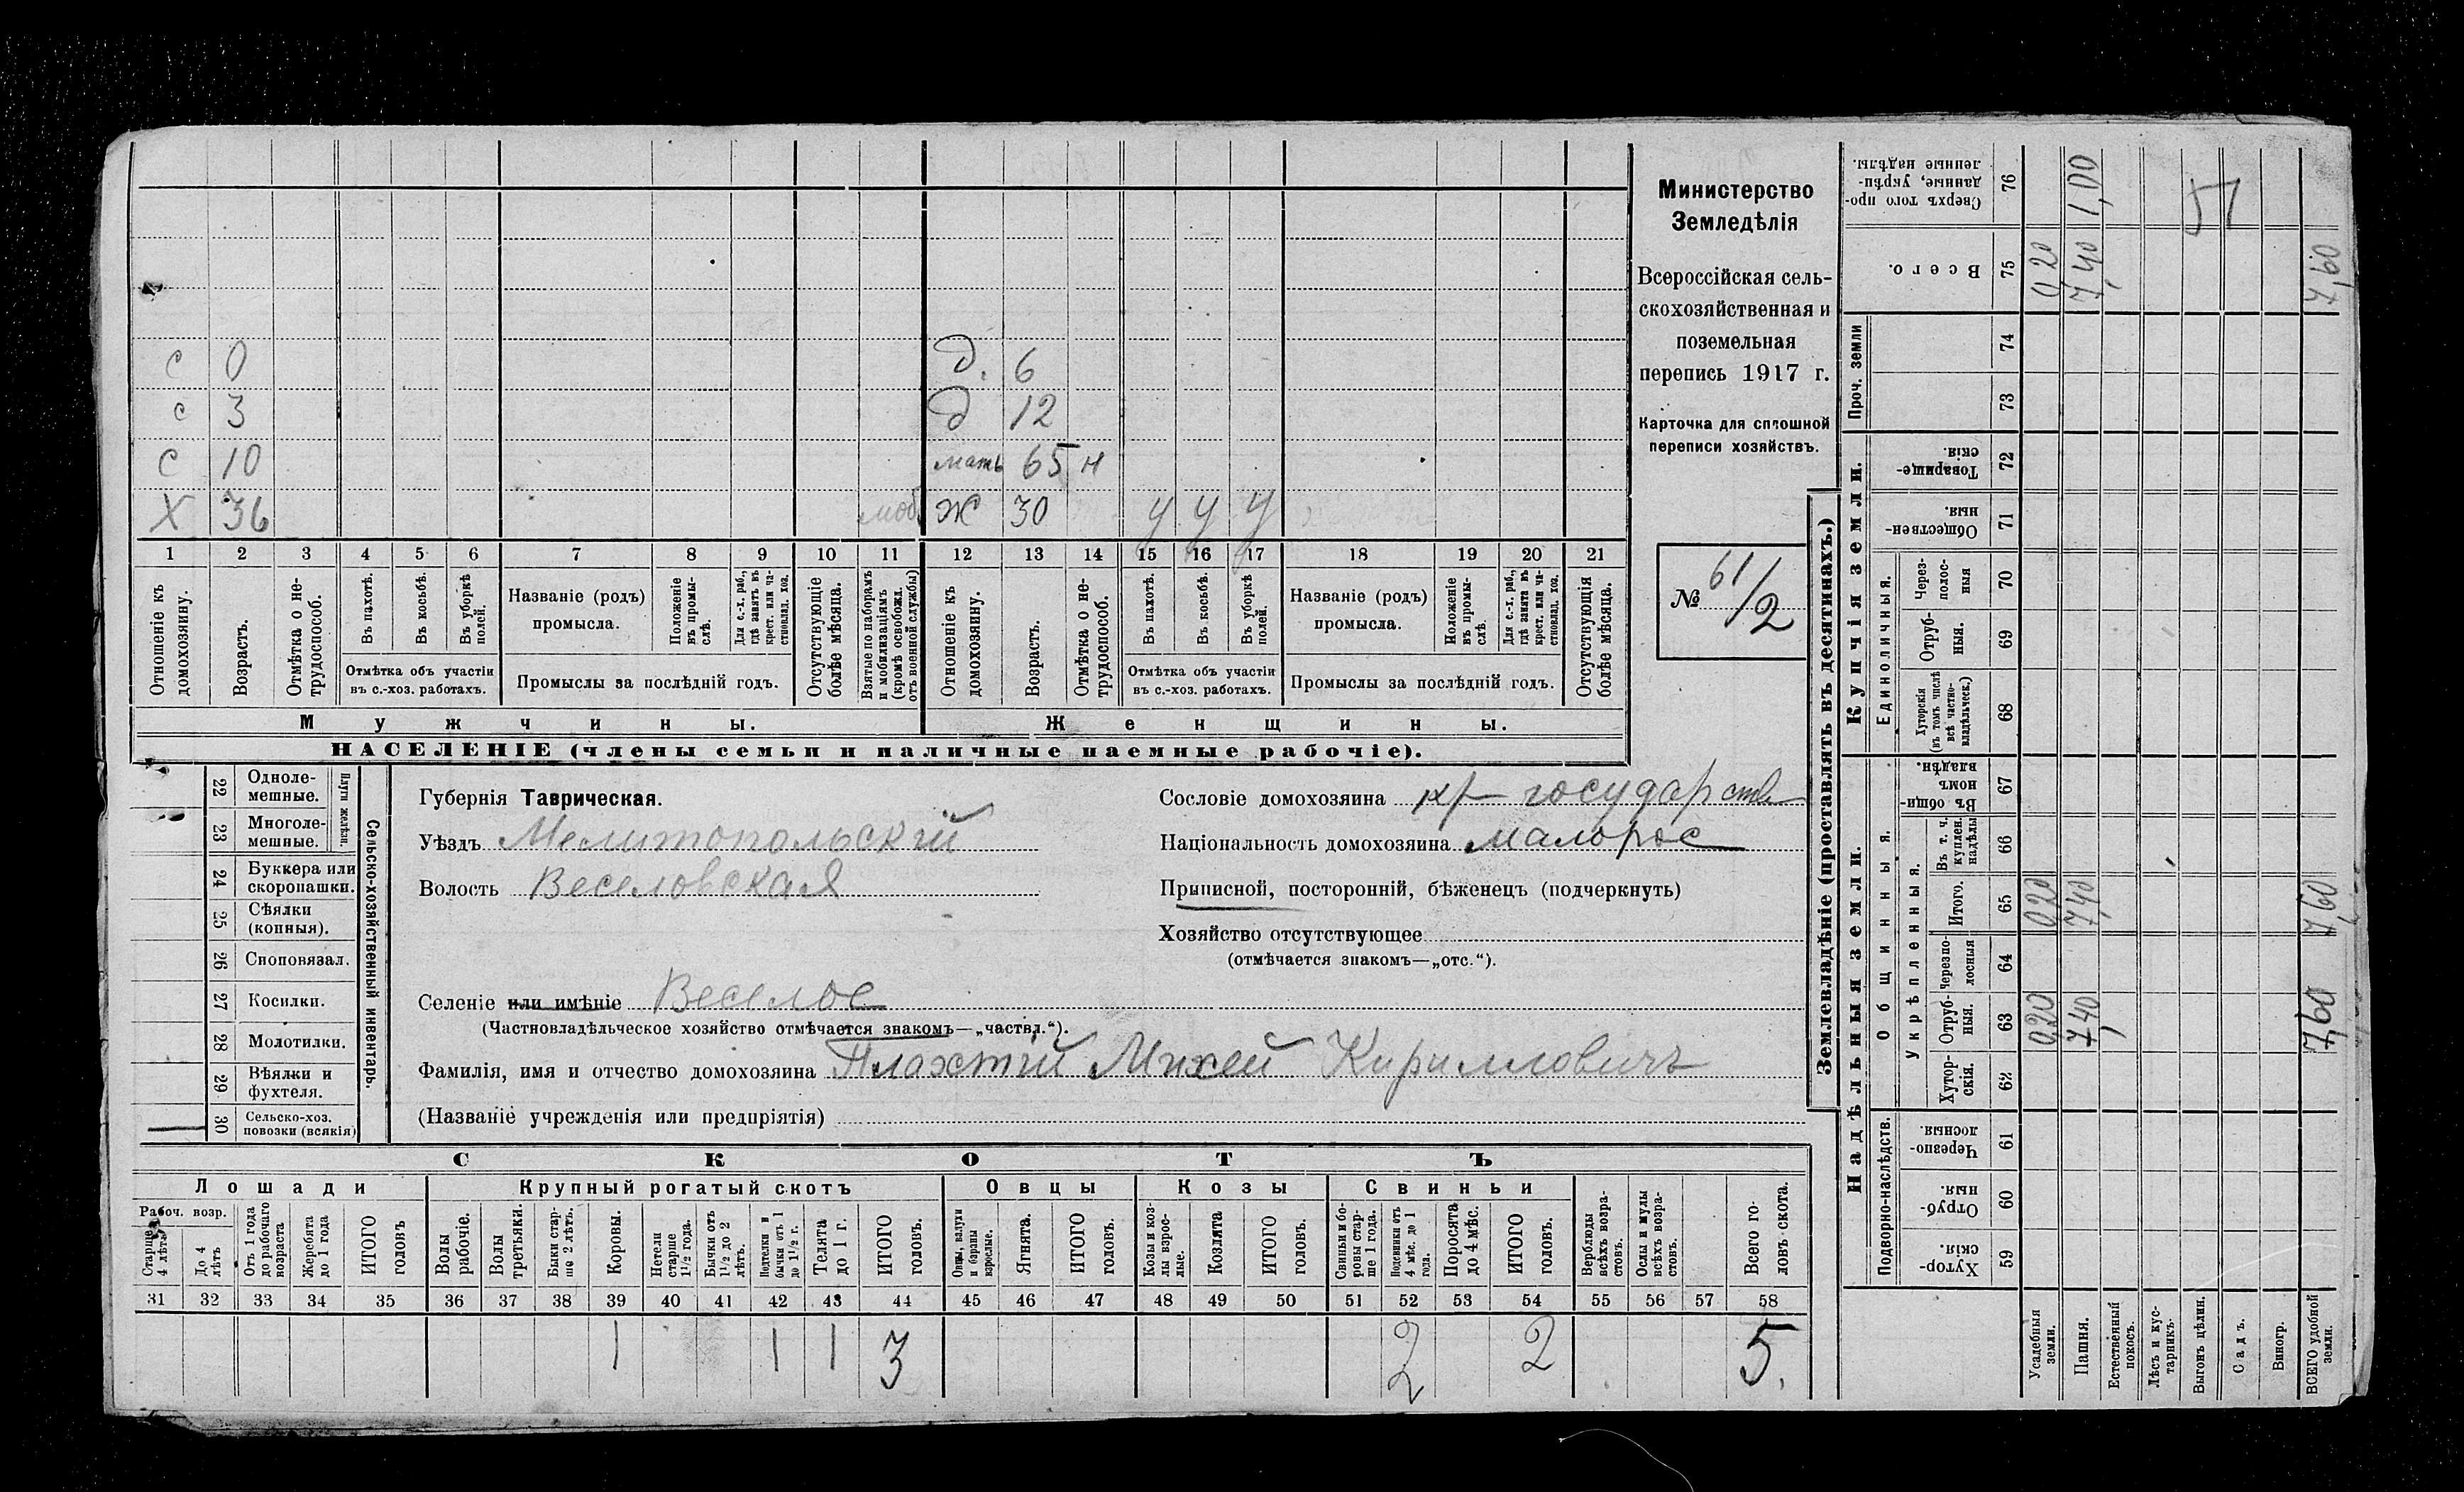 с 0 д. 6
с 3 д 12
с 10 мать 65 н
Х 36 моб. ж 30 у у у
1 2 3 4 5 6 7 8 9 10 11 12 13 14 15 16 17 18 19 20 21
Отношеніе къ домохозяину.
Возрастъ.
Отмѣтка о нетрудоспособ.
Въ пахотѣ.
Въ косьбѣ.
Въ уборкѣ полей.
Отмѣтка объ участіи
въ с.-хоз. работахъ.
Названіе (родъ)
промысла.
Положеніе въ промыслѣ.
Для с.-х. раб., гдѣ занятъ въ крест. или частновлад. хоз.
Промыслы за послѣдній годъ.
Отсутствующіе болѣе мѣсяца.
Взятые по наборамъ и мобилизаціямъ (кромѣ освобожд. отъ военной службы)
Отношеніе къ домохозяину.
Возрастъ.
Отмѣтка о нетрудоспособ.
Въ пахотѣ.
Въ косьбѣ.
Въ уборкѣ полей.
Отмѣтка объ участіи
въ с.-хоз. работахъ.
Названіе (родъ)
промысла.
Положеніе въ промыслѣ.
Для с.-х. раб., гдѣ занята въ крест. или частновлад. хоз.
Промыслы за послѣдній годъ.
Отсутствующія болѣе мѣсяца.
Мужчины. Женщины.
НАСЕЛЕНІЕ (члены семьи и наличные наемные рабочіе).
Министерство
Земледѣлія
Всероссійская сель-
скохозяйственная и
поземельная
перепись 1917 г.
Карточка для сплошной
переписи хозяйствъ.
№ 61/2
22 Одноле-
мешные.
23 Многоле-
мешные.
Плуги желѣзн.
24 Буккера или
скоропашки.
25 Сѣялки
(конныя).
26 Сноповязал.
27 Косилки.
28 Молотилки.
29 Вѣялки и
фухтеля.
30 Сельско-хоз.
повозки (всякія)
Сельско-хозяйственный инвентарь.
Губернія Таврическая.
Уѣздъ Мелитопольскій
Волость Веселовская
Селеніе или имѣніе Веселое
(Частновладѣльческое хозяйство отмѣчается знакомъ—„частвл.“).
Фамилія, имя и отчество домохозяина Плахтій Михей Кирилловичъ
(Названіе учрежденія или предпріятія)
Сословіе домохозяина кр государств
Національность домохозяина малорос
Приписной, посторонній, бѣженецъ (подчеркнуть)
Хозяйство отсутствующее
(отмѣчается знакомъ—„отс.“).
СКОТЪ
Лошади Крупный рогатый скотъ Овцы Козы Свиньи
Рабоч. возр.
Старше 4 лѣтъ
До 4 лѣтъ
Отъ 1 года до рабочаго возраста
Жеребята до 1 года
ИТОГО головъ
Волы рабочіе.
Волы третьяки.
Быки старше 2 лѣтъ.
Коровы.
Нетели старше 1½ года.
Бычки отъ 1½ до 2 лѣтъ.
Подтелки и бычки отъ 1 до 1½ г.
Телята до 1 г.
ИТОГО головъ.
Овцы, валухи и бараны взрослые.
Ягнята.
ИТОГО головъ.
Козы и козлы взрослые.
Козлята
ИТОГО головъ.
Свиньи и боровы старше 1 года.
Подсвинки отъ 4 мѣс. до 1 года.
Поросята до 4 мѣс.
ИТОГО головъ.
Верблюды всѣхъ возрастовъ.
Ослы и мулы всѣхъ возрастовъ.
Всего головъ скота.
31 32 33 34 35 36 37 38 39 40 41 42 43 44 45 46 47 48 49 50 51 52 53 54 55 56 57 58
1 1 1 3 2 2 5.
Землевладѣніе (проставлять въ десятинахъ.)
Надѣльныя земли. Купчія земли. Проч. земли
Подворно-наслѣдств.
Общинныя.
Укрѣпленныя.
Единоличныя.
Хуторскія. 59
Отрубныя. 60
Черезполосныя. 61
Хуторскія. 62
Отрубныя. 63
Черезполосныя 64
Итого. 65
Въ т. ч. куплен. надѣлы 66
Въ общинномъ владѣн. 67
Хуторскія (въ томъ числѣ всѣ частновладѣльческ.) 68
Отрубныя. 69
Черезполосныя 70
Общественныя. 71
Товарищескія. 72
73
74
Всего. 75
Сверхъ того проданные, укрѣпленные надѣлы. 76
Усадебныя земли. 0,20 0,20 0,20
Пашня. 7,40 7,40 7,40 1,00
Естественный покосъ.
Лѣсъ и кустарникъ.
Выгонъ цѣлин.
Садъ.
Виногр.
ВСЕГО удобной земли. 7,60 7,60 7,60